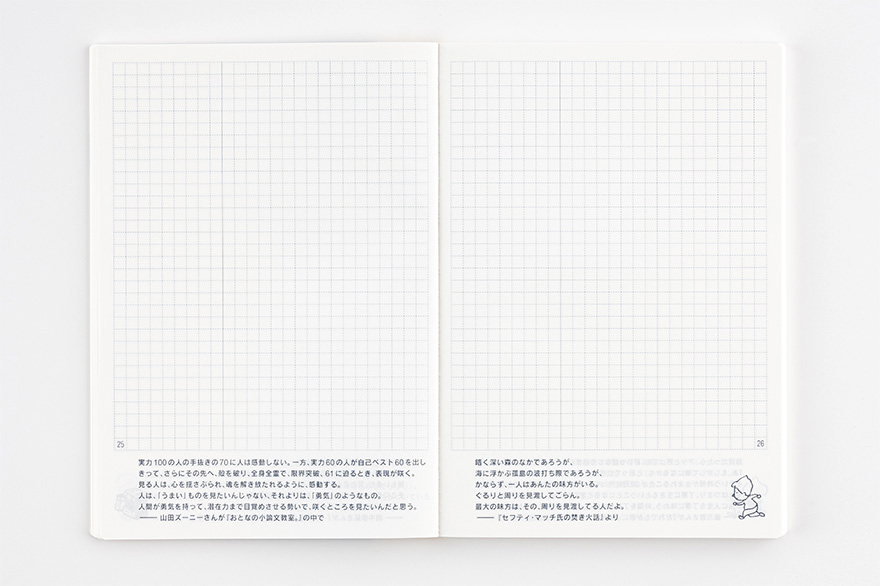 25
実力100の人の手抜きの70に人は感動しない。一方、実力60の人が自己ベスト60を出し
きって、さらにその先へ、殻を破り、全身全霊で、限界突破、61に迫るとき、表現が咲く。
見る人は、心を揺さぶられ、魂を解き放たれるように、感動する。
人は、「うまい」ものを見たいんじゃない、それよりは、「勇気」のようなもの。
人間が勇気を持って、潜在力まで目覚めさせる勢いで、咲くところを見たいんだと思う。
── 山田ズーニーさんが『おとなの小論文教室。』の中で
26
暗く深い森のなかであろうが、
海に浮かぶ孤島の波打ち際であろうが、
かならず、一人はあんたの味方がいる。
ぐるりと周りを見渡してごらん。
最大の味方は、その、周りを見渡してる人だよ。
── 『セフティ・マッチ氏の焚き火話』より